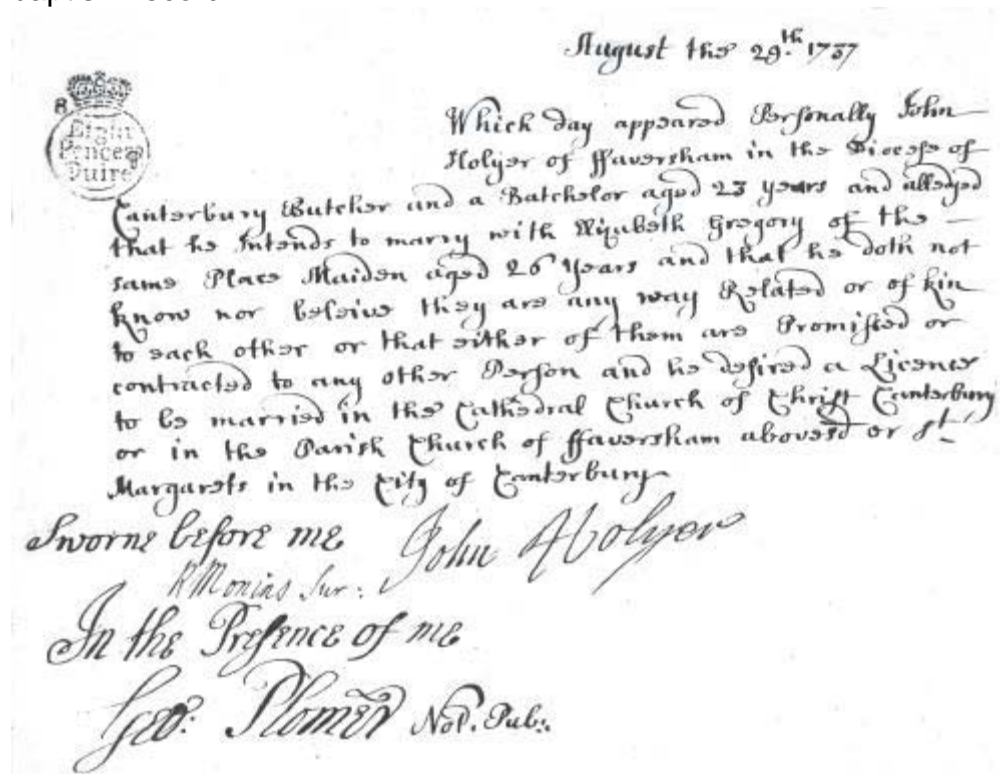 August the 29.th 1737
8
Eight
Pence ꝑ
Quire
Which day appeared Personally John
Holyer of ffaversham in the Diocese of
Canterbury Butcher and a Batchelor aged 23 years and alledged
that he Intends to marry with Elizabeth Gregory of the —
same Place Maiden aged 26 Years and that he doth not
know nor beleive they are any way Related or of kin
to each other or that either of them are Promissed or
contracted to any other Person and he desired a Licence
to be married in the Cathedral Church of Christ Canterbury
or in the Parish Church of ffaversham abovesd or St
Margarets in the City of Canterbury
Sworne before me John Holyer
R Monins Sur:
In the Presence of me
Geo: Plomer Not. Pub: